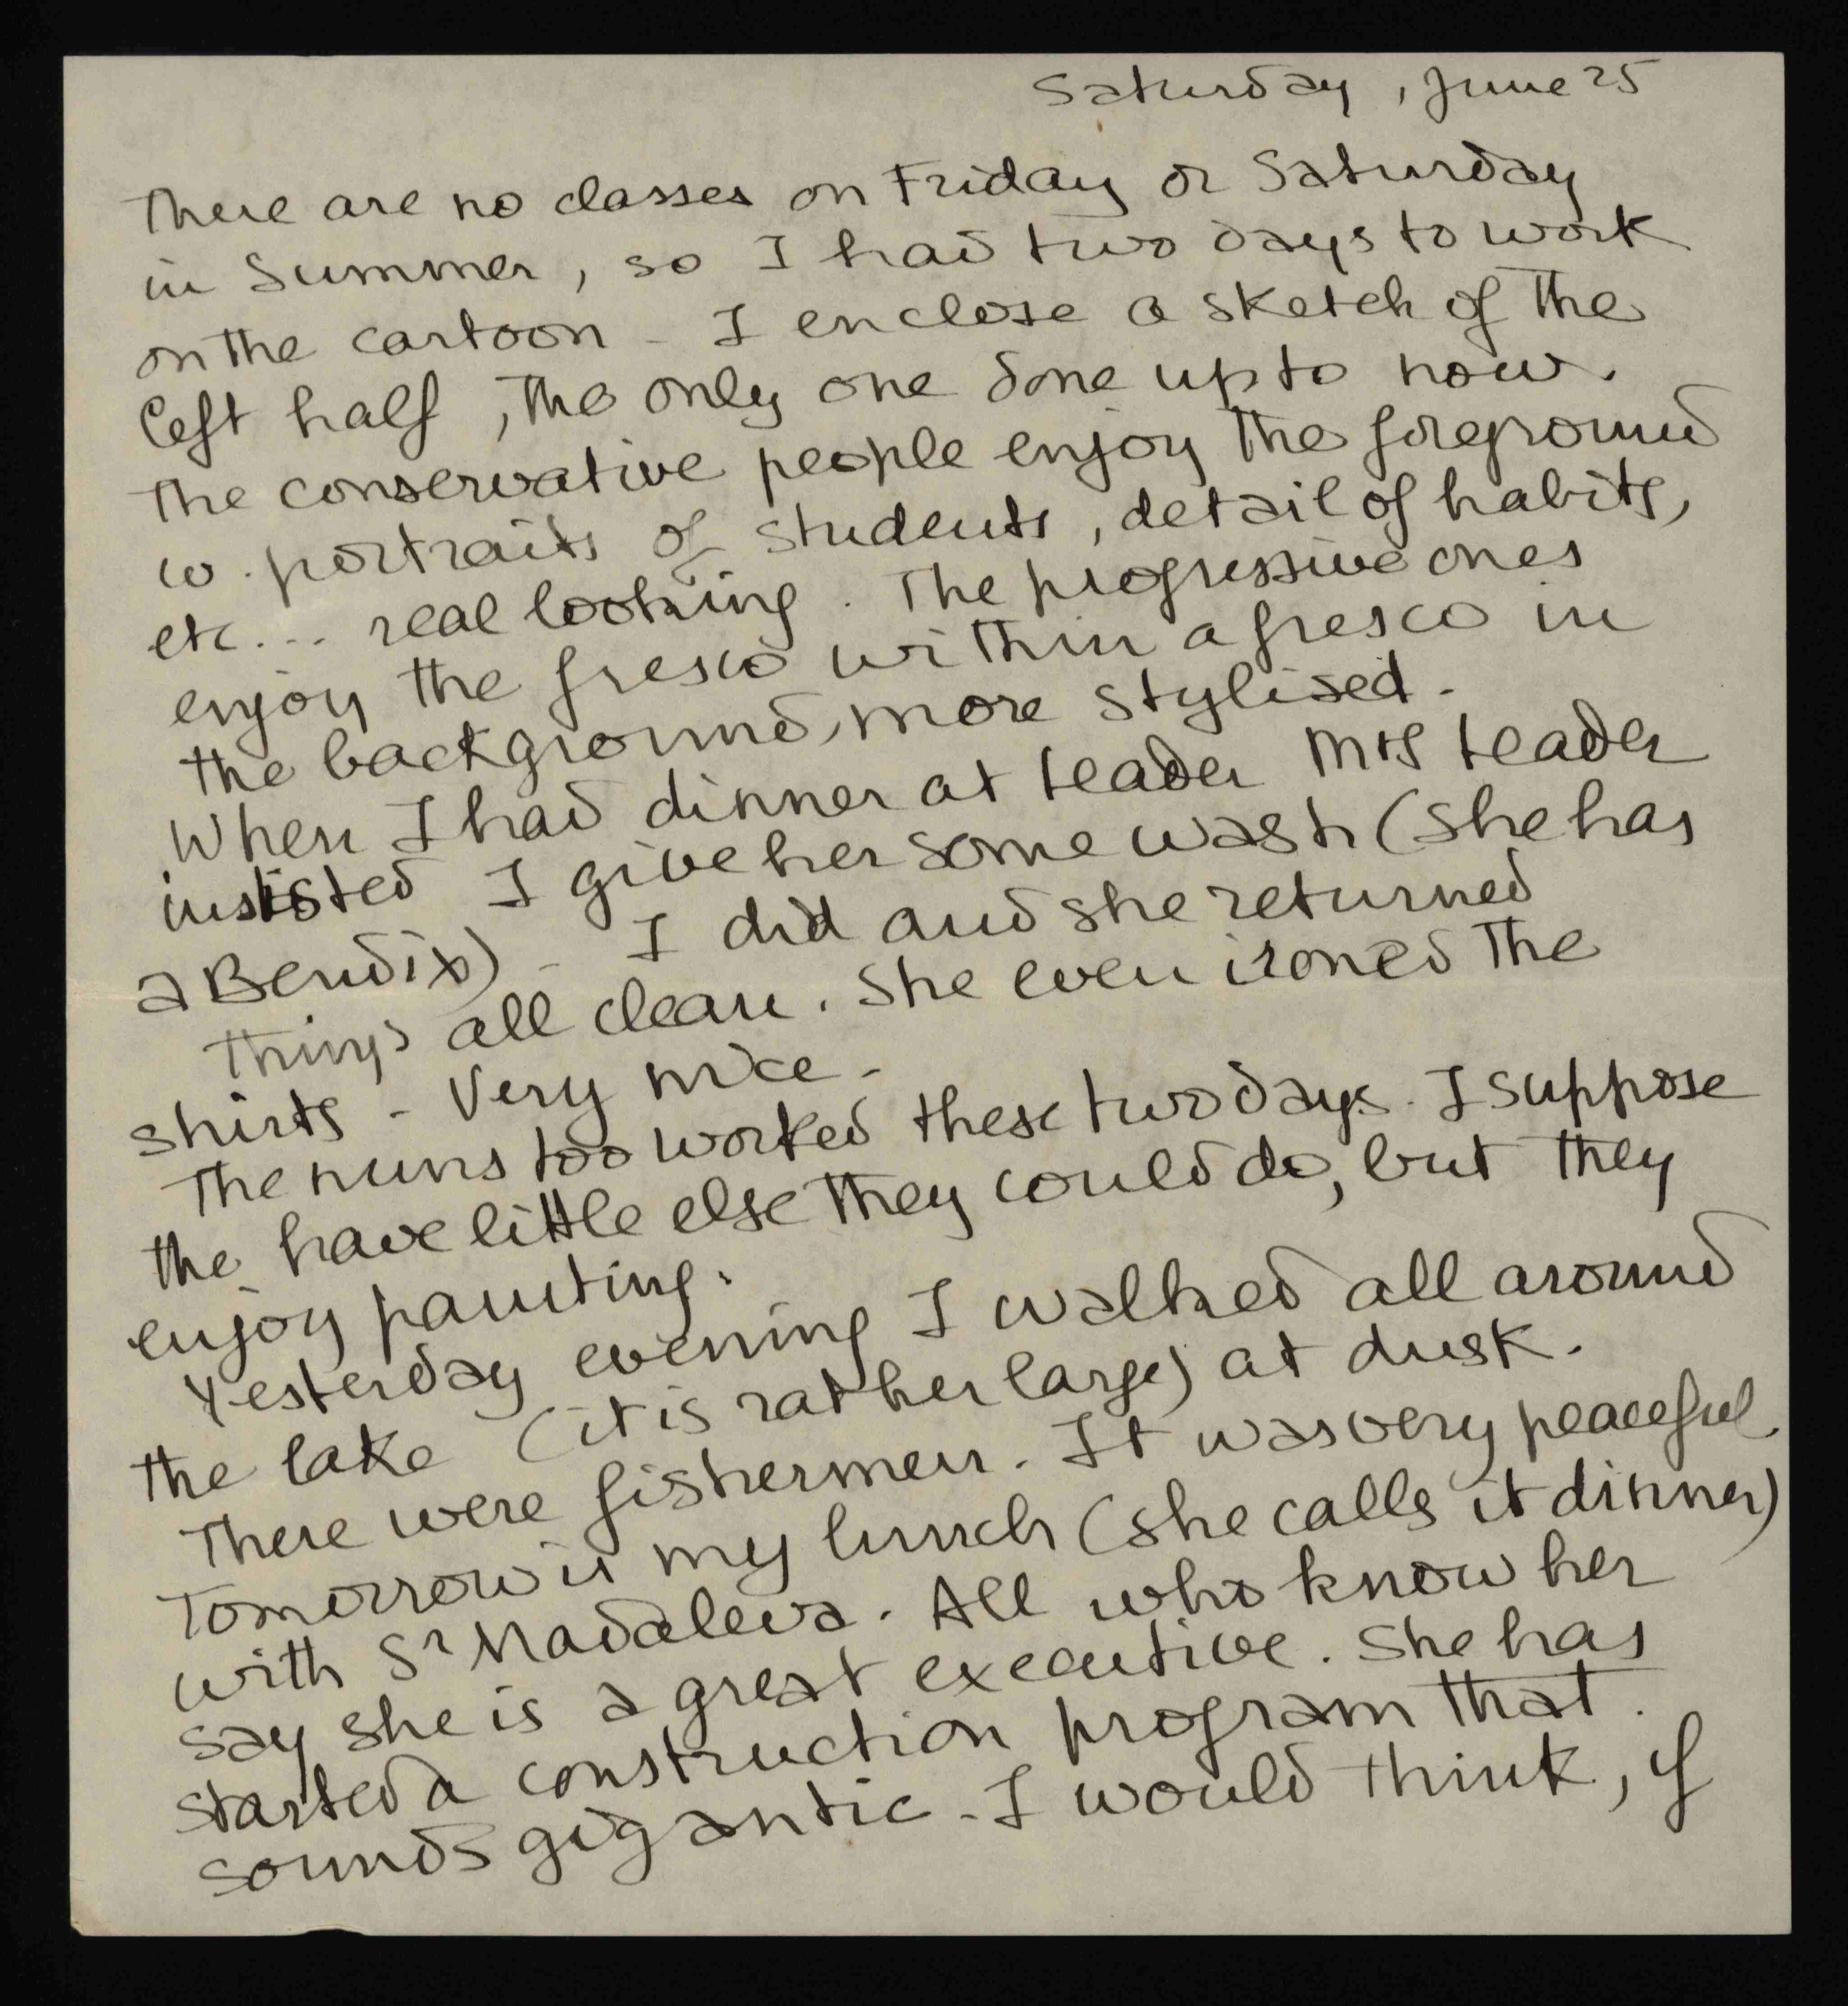 Saturday, June 25
There are no classes on Friday or Saturday
in Summer, so I had two days to work
on the cartoon - I enclose a sketch of the
left half, the only one done up to now.
The conservative people enjoy the foreground
w. portraits of students, detail of habits,
etc... real looking. The progressive ones
enjoy the fresco within a fresco in
the background, more stylised.
When I had dinner at Leader Mrs Leader
insisted I give her some wash (she has
a Bendix) - I did and she returned
things all clean. She even ironed the
shirts - Very nice -
The nuns too worked these two days. I suppose
the have little else they could do, but they
enjoy painting.
Yesterday evening I walked all around
the lake (it is rather large) at dusk.
There were fishermen. It was very peaceful.
Tomorrow is my lunch (she calls it dinner)
with Sr Madaleva. All who know her
say she is a great executive. She has
started a construction program that
sounds gigantic - I would think, if